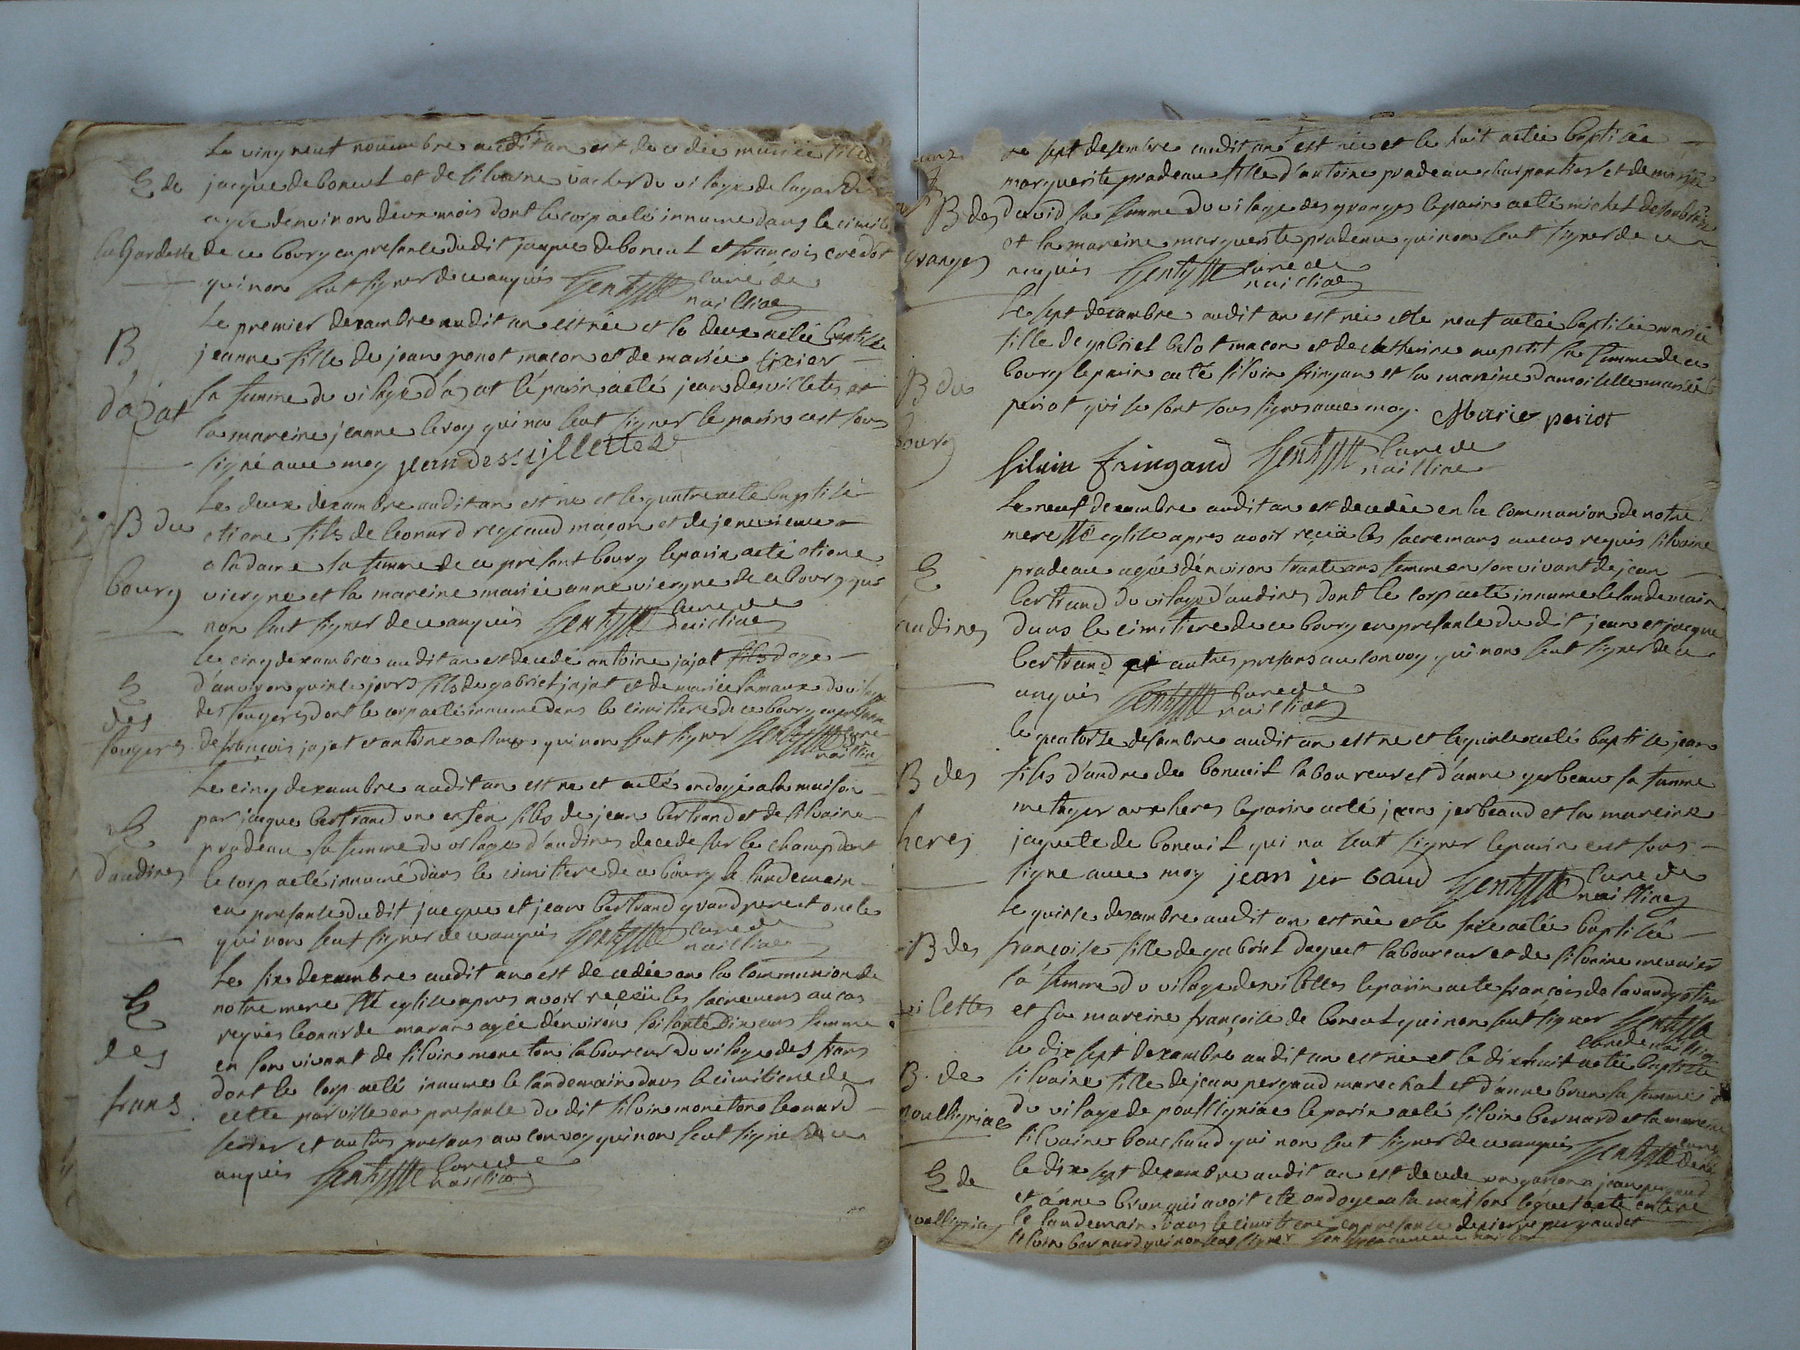 Le ving neuf nouembre audit an est decedée mariée fille
E de
jacque de boneul et de silvaine vacher du vilage de lagardette
agée denviron deux mois dont le corp a eté innumé dans le cimitiere
la Gardette
de ce bourg en presance dudit jacque de boneul et francois credot
qui non seut signer de ce anquis Gentystte curé de
nailliac
Le premier dexambre audit an est née et le deux a etée baptisée
B
jeanne fille de jean penot macon et de mariée
d'azat
sa famme du vilage d'azat le parin a eté jean desvilletes et
la mareine jeanne leroy qui na seut signer le parin cest sous
signé avec moy jean desvillettes
Le deux dexambre audit an est né et le quatre a eté baptisé
B du
etiene fils de leonard regeaud macon et de jenevieve
aladaire sa famme de ce present bourg le parin a eté etiene
bourg
viergne et la mareine mariée anne viergne de ce bourg qui
non seut signer de ce anquis Gentystte curé de
nailliac
le cinq dexambre audit an est decedé antoine jajat fils dage
E
d'anviron quinse jours fils de gabriel jajat et de mariée simaux du vilage
des
des fougeres dont le corp a eté innumé dans le cimitiere de ce bourg en presance
fougeres
de francois jajat et antoine qui non seut signer Gentystte curé de
nailliac
Le cinq dexambre audit an est né et a eté ondoyé a la maison
par jacque bertrand une enfan fils de jean bertrand et de silvaine
E
pradeau sa famme du vilage d'audines decedé sur le champ dont
d'audines
le corp a eté innumé dans le cimitiere de ce bourg le landemain
en presance dudit jacque et jean bertrand grand pere et oncle
qui non seut signer de ce anquis Gentystte curé de
nailliac
Le six dexambre audit an est decedée an la communion de
E
notre mere Ste eglise apres avoir reçeu les sacremens au cas
requis leonarde maran agée d'environ soisante dix ans famme
des
en son vivant de silvin moneton laboureur du vilage des frans
dont le corp a eté innumé le landemain dans le cimitiere de
frans
cette parville en presance du dit silvin moneton leonard
et autres presans au convoy qui non seut signé de ce
anquis Gentystte curé de
nailliac
Le sept desembre audit an est née et le huit a etée baptisée
marguerite pradeau fille d'antoine pradeau charpantier et de mariée
B des
david sa famme du vilage des granges le parin a eté michel
granges
et la mareine marguerite pradeau qui non seut signer de ce
anquis Gentystte curé de
nailliac
Le sept dexambre audit an est née et le neuf a etée baptisée mariée
fille de gabriel belot macon et de catherine aupetit sa famme de ce
B du
bourg le parin a eté silvin fringan et la mareine damoiselle mariée
bourg
periot qui se sont sous signes avec moy. Marie periot
Silvin fringand Gentystte curé de
nailliac
Le neuf dexambre audit an est decedée en la communion de notre
mere Ste eglise apres avoir reçeü les sacremans au cas requis silvaine
E
pradeau agée d'environ trante ans famme en son vivant de jean
bertrand du vilage d'audines dont le corp a eté innumé le landemain
audines
dans le cimitiere de ce bourg en presance du dit jean et jacque
bertrand et autres presans au convoy qui non seut signer de ce
anquis Gentystte curé de
nailliac
le quatorse desambre audit an est né et le quinse a eté baptisé jean
B des
fils d'andre de boneuil laboureur et d'anne gerbeau sa famme
metayer aux heres le parin a eté jean jerbeaud et la mareine
heres
jaquete de boneuil qui na seut signer le parin cest sous
signe avec moy jean jer baud Gentystte curé de
nailliac
Le quinse dexambre audit an est née et le seise a etée baptisée
B des
francoise fille de gabriel daquet laboureur et de silvaine meunier
sa famme du vilage des viletes le parin a eté francois
vilettes
et la mareine françoise de boneul qui non seut signer Gentystte
curé de nailliac
le dix sept dexambre audit an est née et le dix huit a etée baptisée
B de
silvaine fille de jean pergaud marechal et d'anne brun sa famme
poulligniac
du vilage de poulligniac le parin a eté silvin bernard et la mareine
silvaine bouchaud qui non seut signer de ce anquis Gentystte curé
de
E de
le dix sept dexambre audit an est decedé un garcon a jean pergaud
et anne brun qui avoit eté ondoyé a la maison lequel a eté enteré
poulligniac
le landemain dans le cimitiere en presance de pierre pergaud et
silvin bernard qui non seut signer Gentystte curé de nailliac